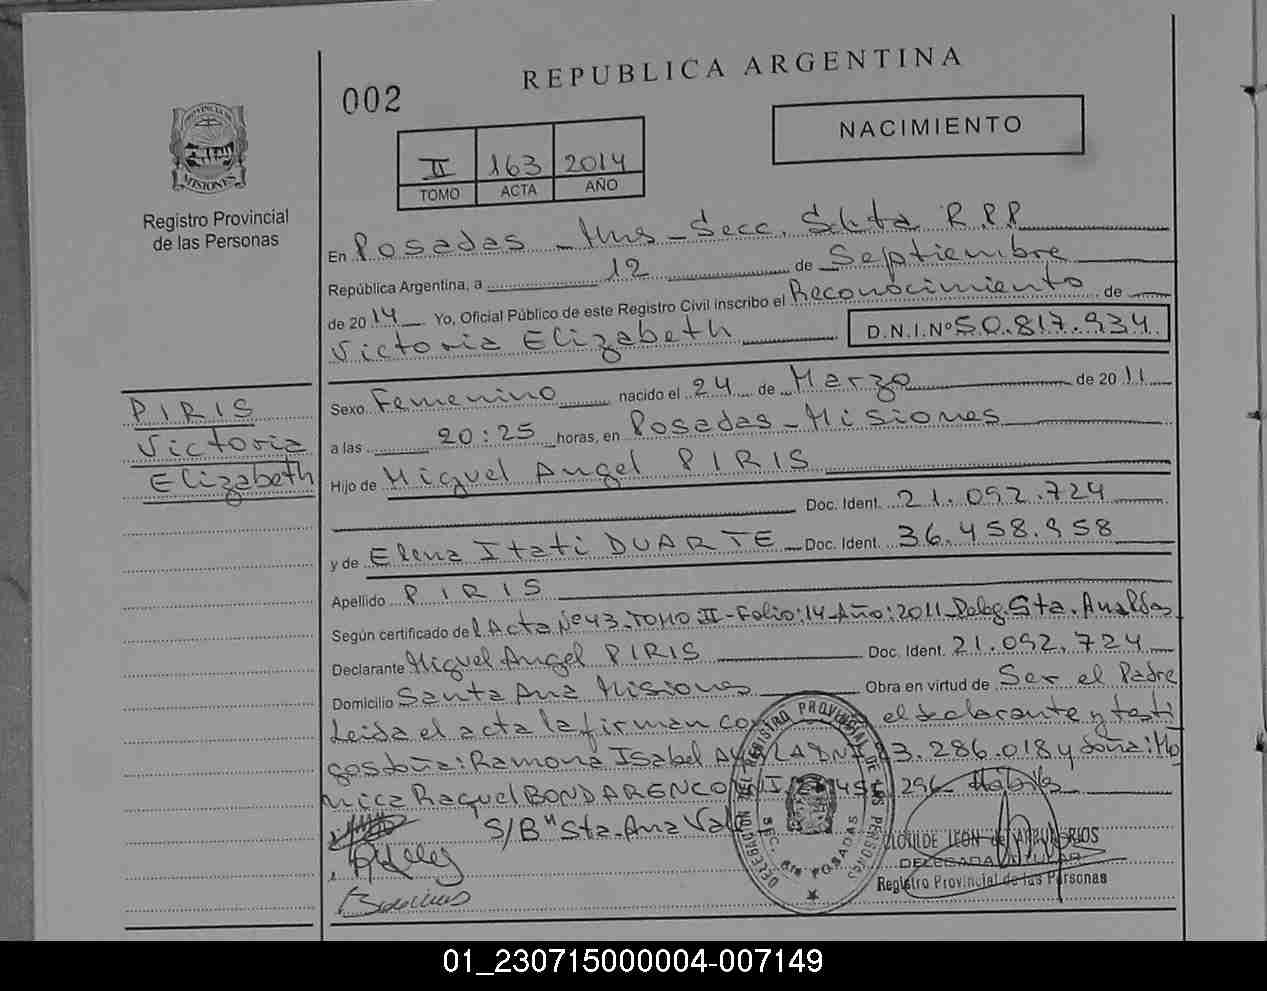 REPUBLICA ARGENTINA
002
NACIMIENTO
II 163 2014
TOMO ACTA AÑO
PROVINCIA DE
MISIONES
Registro Provincial
de las Personas
En Posadas - Mns - Secc. Sexta R.P.P
República Argentina, a 12 de Septiembre
de 2014 Yo, Oficial Público de este Registro Civil inscribo el Reconocimiento de
Victoria Elizabeth D.N.I.Nº 50.817.934
PIRIS
Victoria
Elizabeth
Sexo Femenino nacido el 24 de Marzo de 2011
a las 20:25 horas, en Posadas - Misiones
Hijo de Miguel Angel PIRIS
Doc. Ident. 21.092.724
y de Elena Itati DUARTE Doc. Ident. 36.458.958
Apellido PIRIS
Según certificado del Acta Nº 43. TOMO II - Folio: 14 - Año: 2011 Deleg. Sta. Ana
Declarante Miguel Angel PIRIS Doc. Ident. 21.092.724
Domicilio Santa Ana Misiones Obra en virtud de Ser el Padre
Leida el acta la firman el declarante y testi
gos doña: Ramona Isabel 3.286.018 y doña: Mo
nica Raquel BONDARENCO 296
S/Bº Sta. Ana
DELEGACION REGISTRO PROVINCIAL DE LAS PERSONAS
SEC. 6ta POSADAS
CLOTILDE LEON de
DELEGADA TITULAR
Registro Provincial de las Personas
01_230715000004-007149